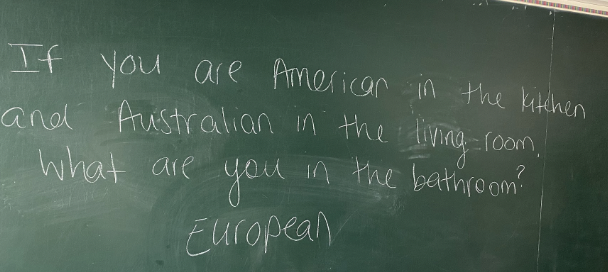 If you are American in the kitchen
and Australian in the living-room,
What are you in the bathroom?
European